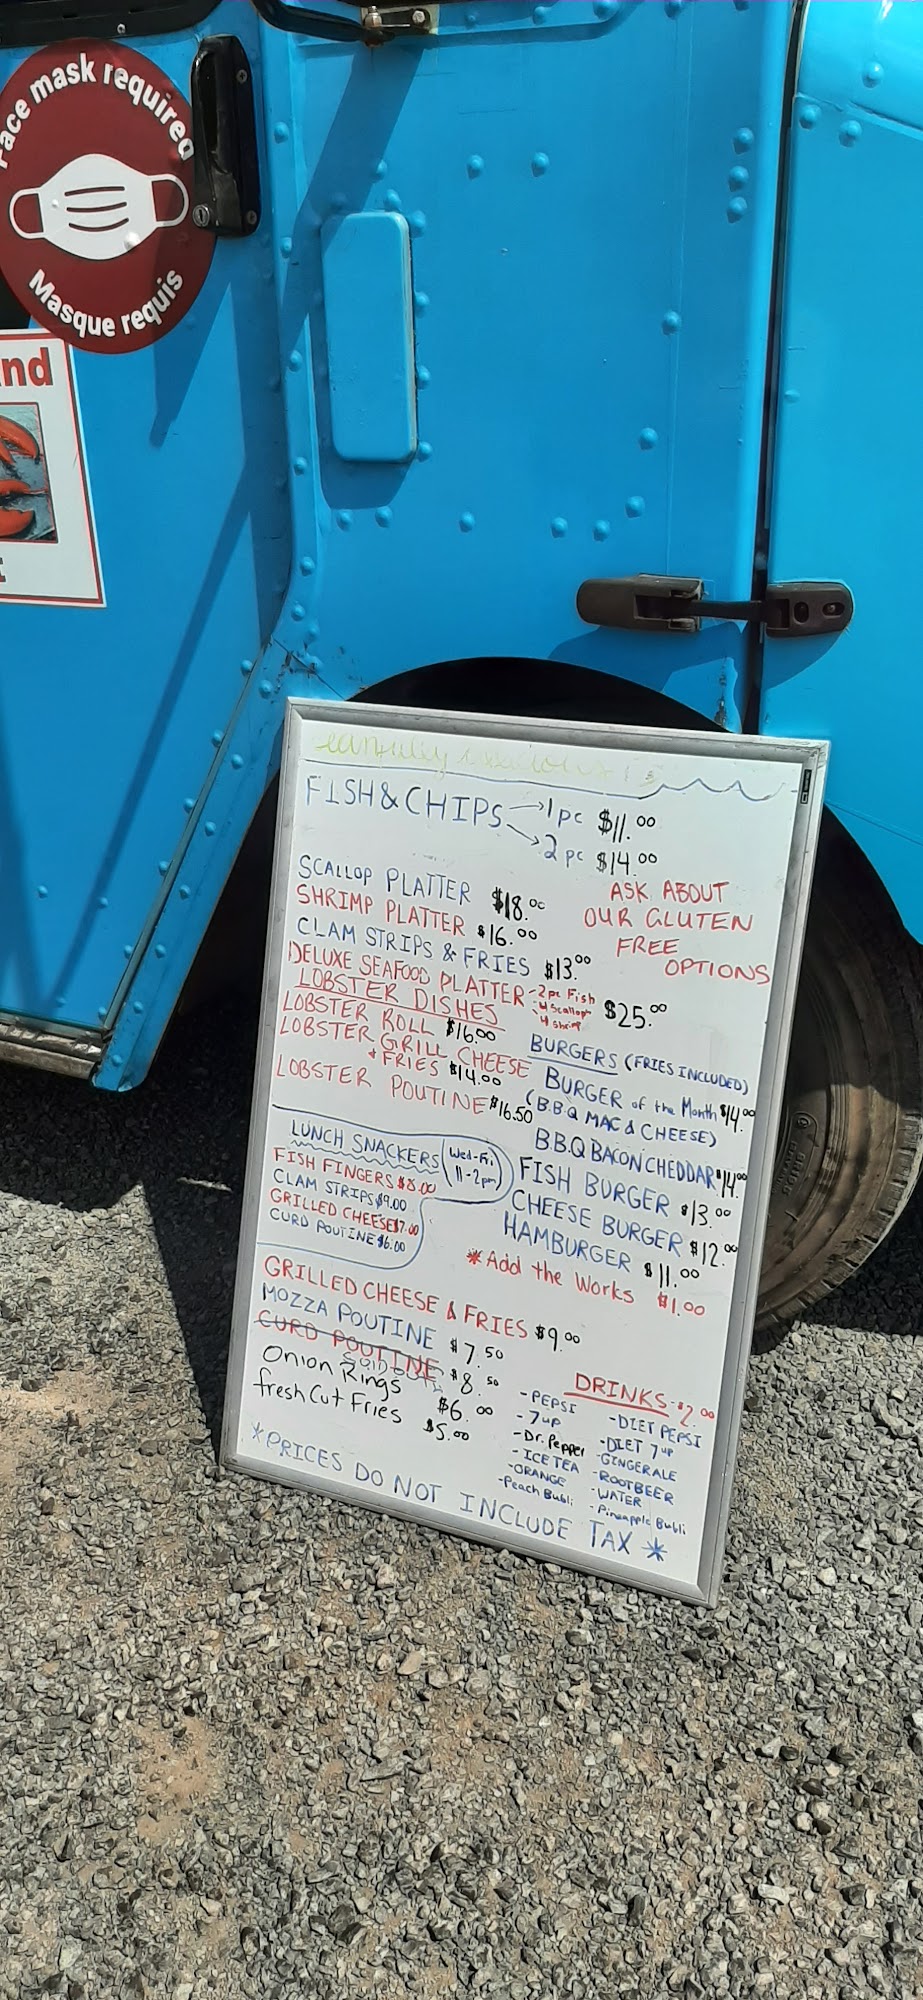 Face mask required
Masque requis
nd
FISH & CHIPS → 1 pc $11.00
→ 2 pc $14.00
ASK ABOUT
OUR GLUTEN
FREE
OPTIONS
SCALLOP PLATTER $18.00
SHRIMP PLATTER $16.00
CLAM STRIPS & FRIES $13.00
DELUXE SEAFOOD PLATTER $25.00
- 2 pc Fish
- 4 Scallop
- 4 shrimp
LOBSTER DISHES
LOBSTER ROLL $16.00
LOBSTER GRILL CHEESE
& FRIES $14.00
LOBSTER POUTINE $16.50
BURGERS (FRIES INCLUDED)
BURGER of the Month $14.00
(B.B.Q MAC & CHEESE)
B.B.Q BACON CHEDDAR $14.00
FISH BURGER $13.00
CHEESE BURGER $12.00
HAMBURGER $11.00
* Add the Works $1.00
LUNCH SNACKERS (Wed-Fri
11-2pm)
FISH FINGERS $8.00
CLAM STRIPS $9.00
GRILLED CHEESE $7.00
CURD POUTINE $6.00
GRILLED CHEESE & FRIES $9.00
MOZZA POUTINE $7.50
CURD POUTINE $8.50
Sold out
Onion Rings $6.00
fresh Cut Fries $5.00
DRINKS - $2.00
- PEPSI
- 7up
- Dr. Pepper
- ICE TEA
- ORANGE
- Peach Bubli
- DIET PEPSI
- DIET 7up
- GINGERALE
- ROOTBEER
- WATER
- Pineapple Bubli
*PRICES DO NOT INCLUDE TAX *